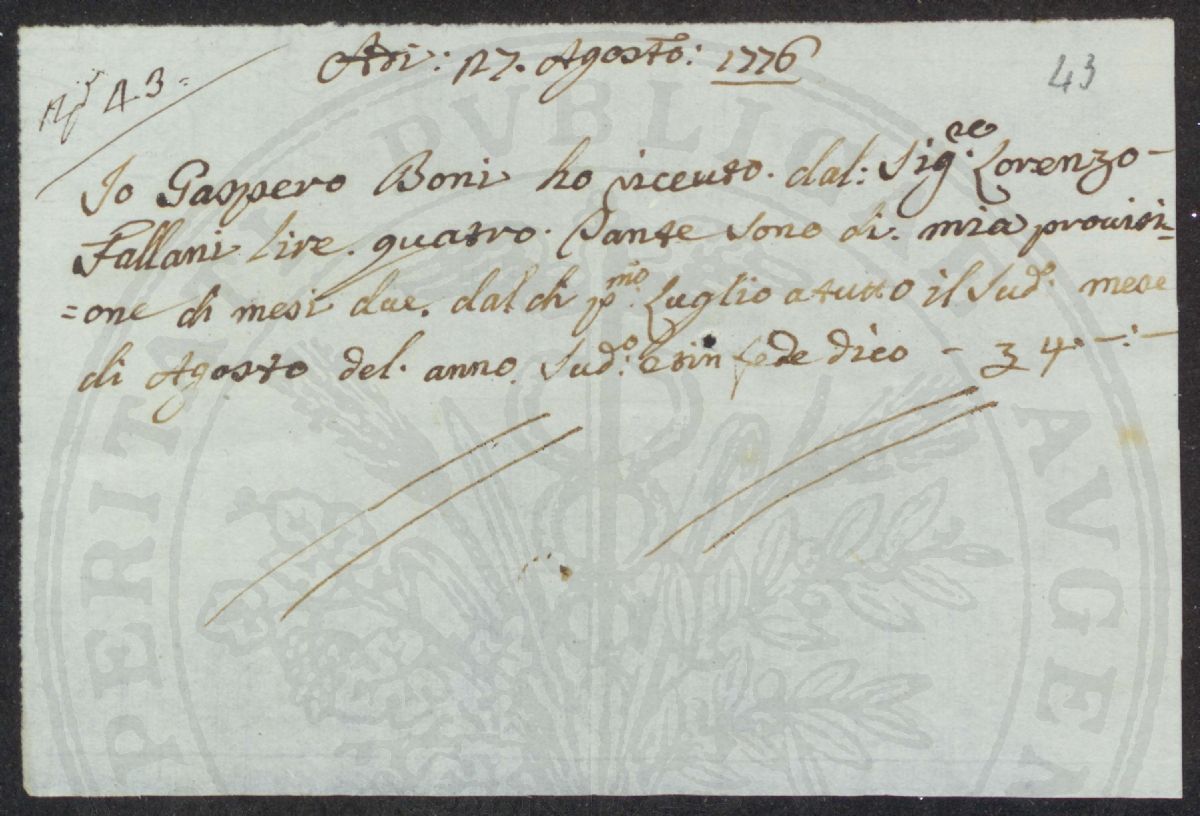 Adì: 27. Agosto: 1776
N° 43=
43
Io Gaspero Boni ho riceuto. dal: Sig.re Lorenzo-
Fallani lire. quatro. Tante sono di. mia provisi=
=one di mesi due. dal di p.mo Luglio a tutto il Sud.o mese
di Agosto del. anno. Sud.o: e in fede dico - 4. -:-
PUBLICAE AUGEN
PERITATI